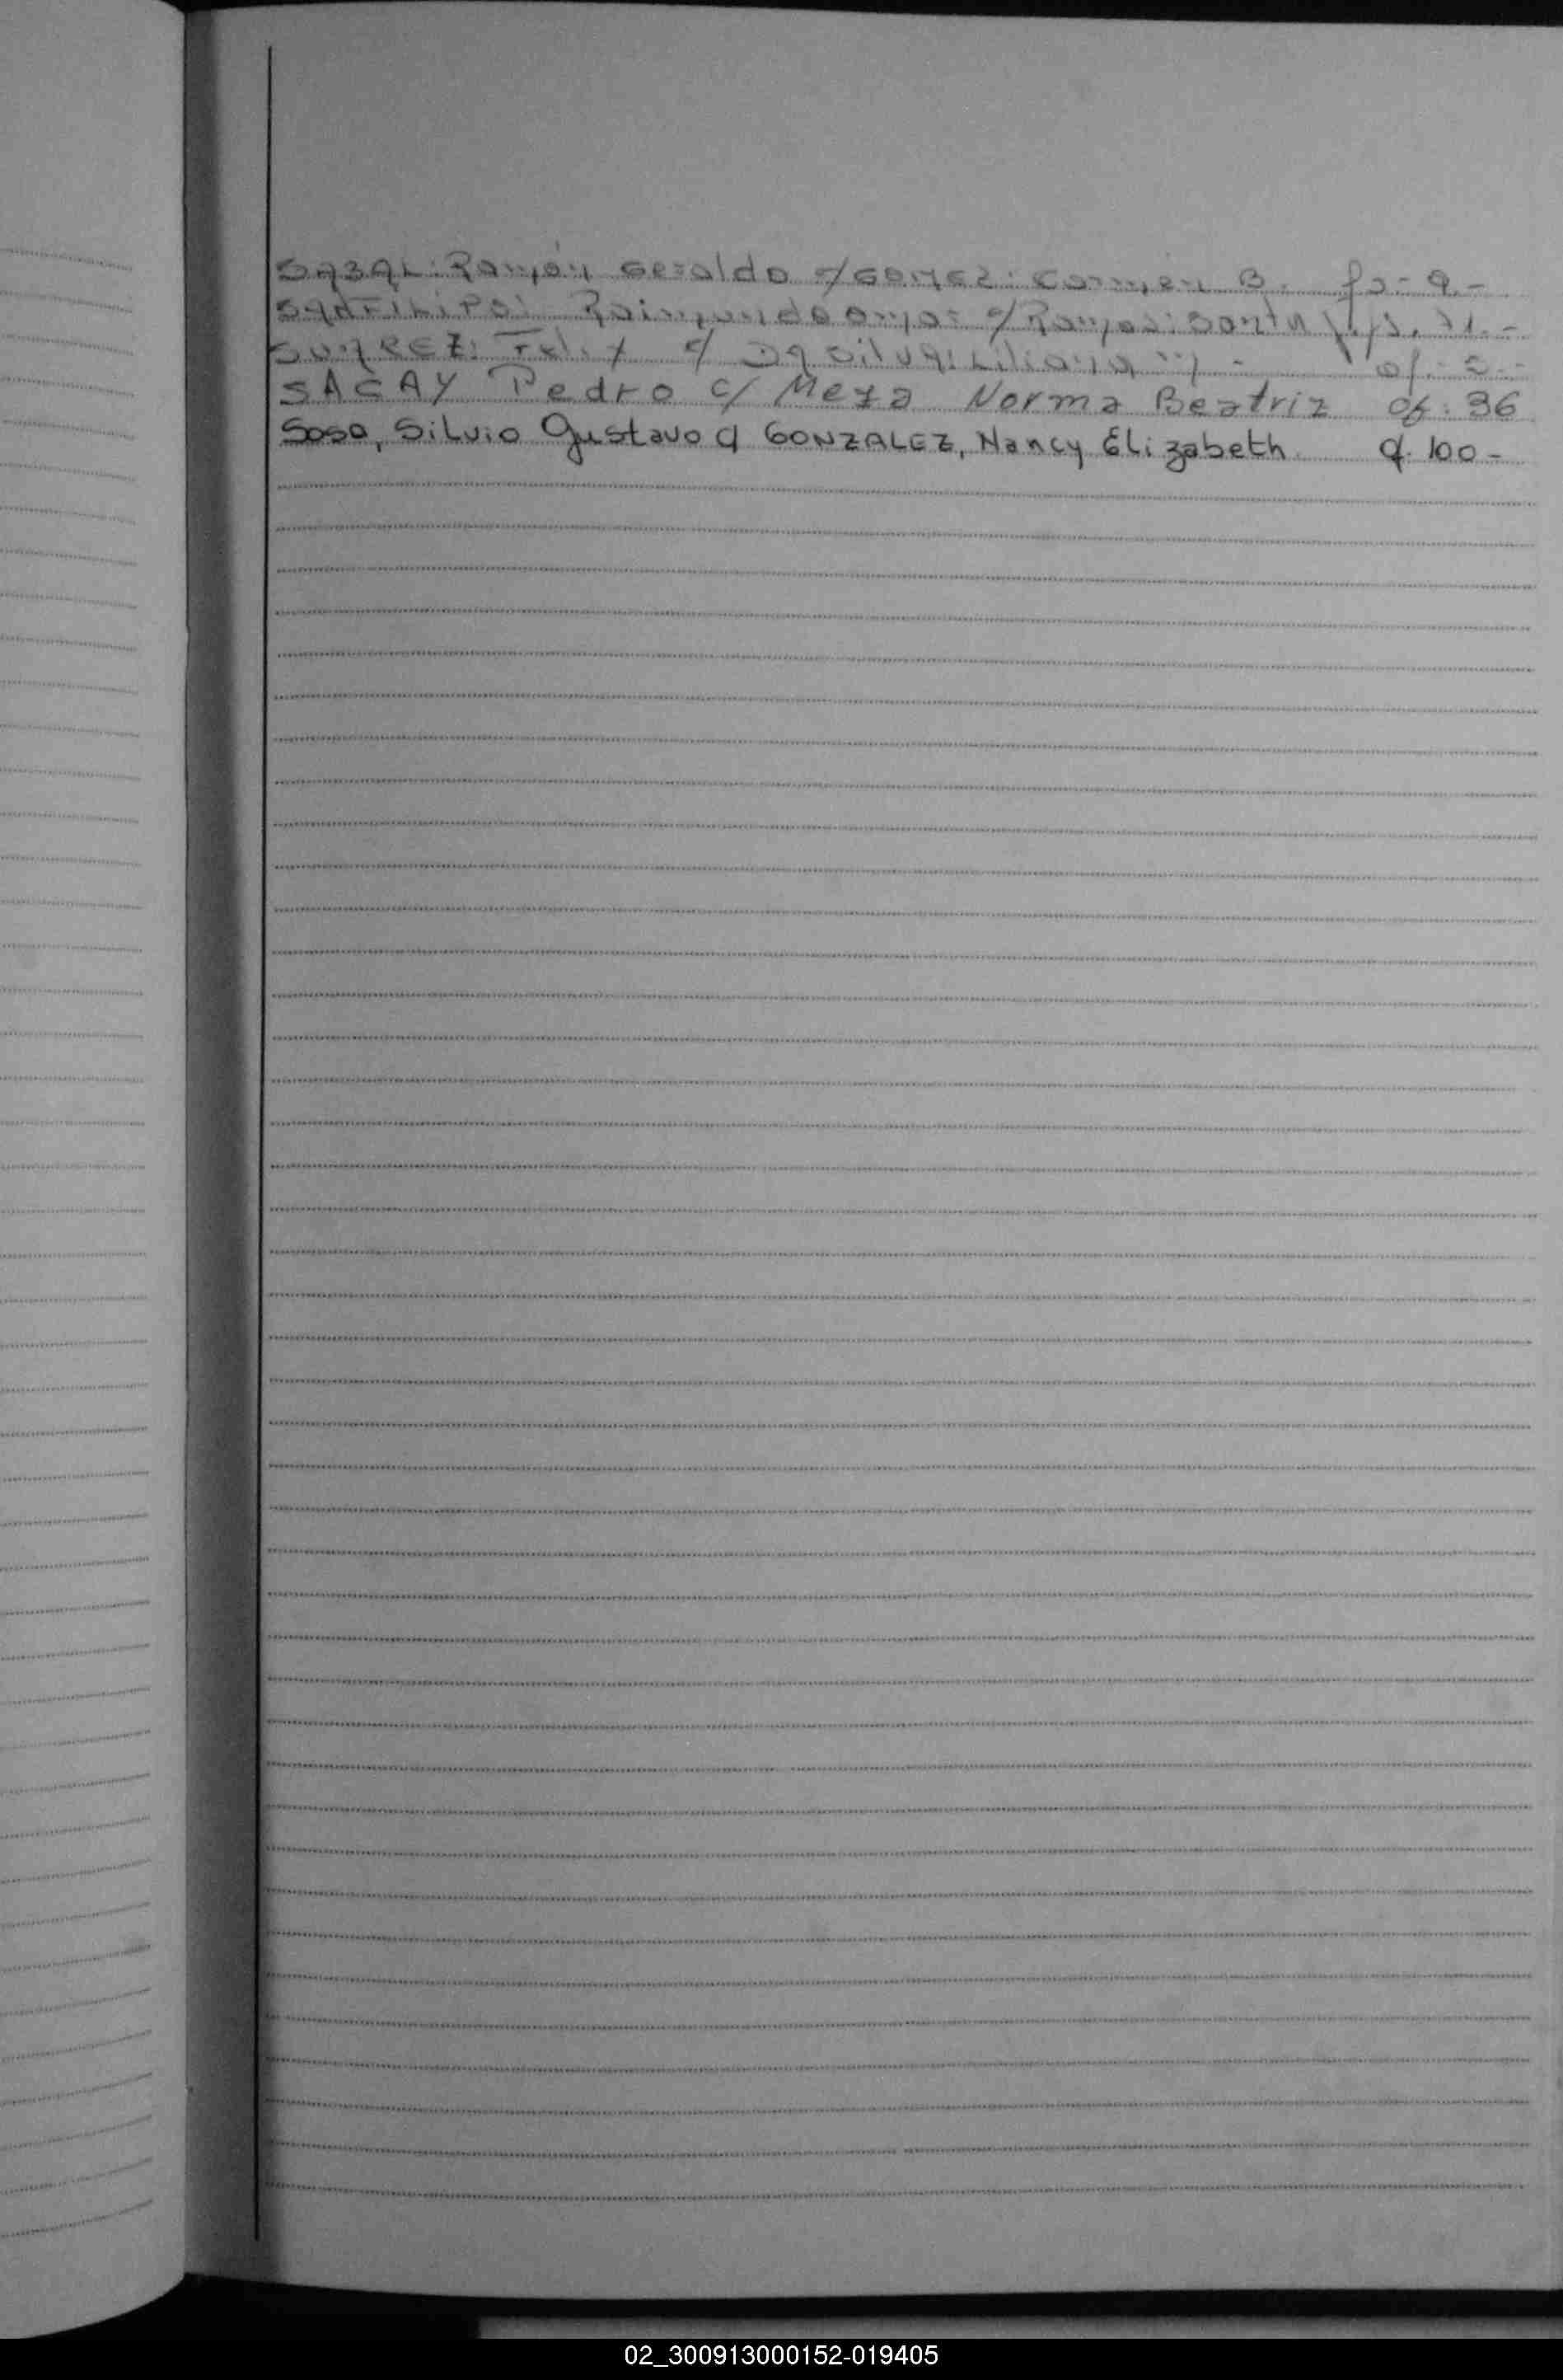 SABAL: Ramón Geraldo c/ GOMEZ: Carmen B. fs - 9.-
SANFILIPO: Raimundo Omar c/ Ramos: Santa fs. 71.-
SUAREZ: Felix c/ Da Silva: Liliana M - of. 2.-
SAGAY Pedro c/ Meza Norma Beatriz of: 36
Sosa, Silvio Gustavo c/ GONZALEZ, Nancy Elizabeth. of. 100-
02_300913000152-019405